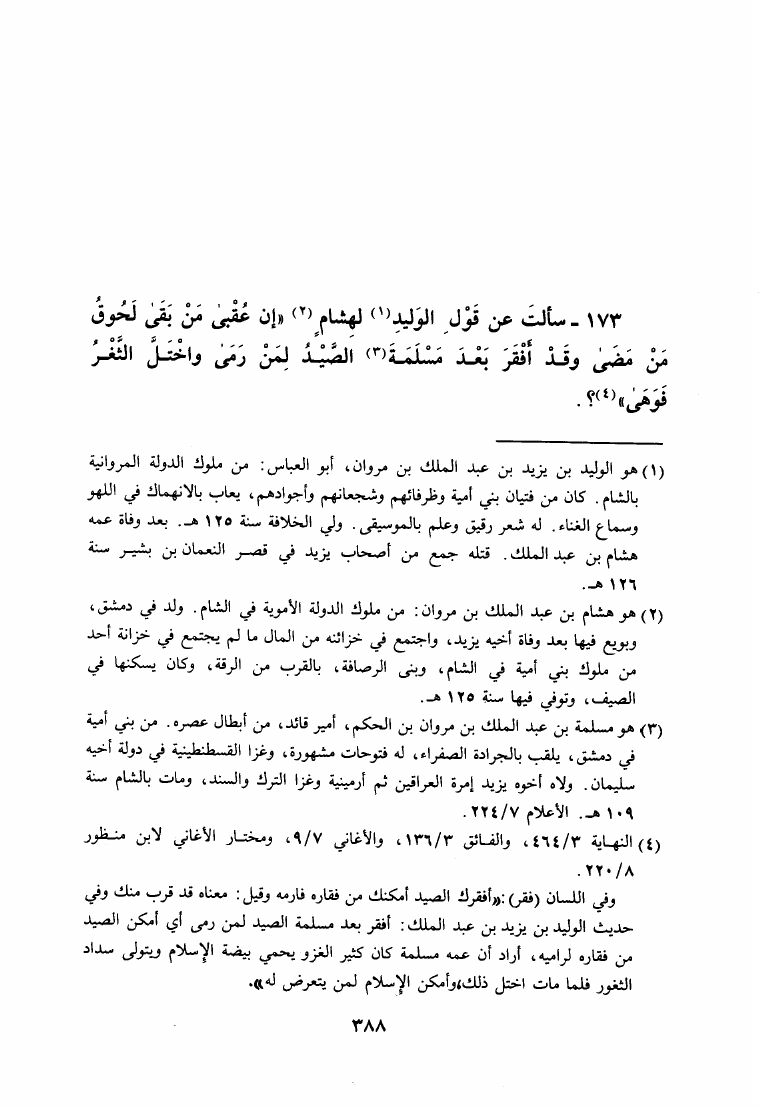 ١٧٣ - سألتَ عن قَوْلِ الوَليدِ(١) لهِشامٍ(٢) «إن عُقْبىٰ مَنْ بَقَىٰ لَحُوقُ
مَنْ مَضَىٰ وقَـدْ أَفْقَرَ بَعْـدَ مَسْلَمَـةَ(٣) الصَّيْـدُ لِمَنْ رَمَىٰ واخْتَـلَّ الثَّغْـرُ
فَوَهَىٰ»(٤)؟ .
(١) هو الوليد بن يزيد بن عبد الملك بن مروان، أبو العباس: من ملوك الدولة المروانية
بالشام. كان من فتيان بني أمية وظرفائهم وشجعانهم وأجوادهم، يعاب بالانهماك في اللهو
وسماع الغناء. له شعر رقيق وعلم بالموسيقى. ولي الخلافة سنة ١٢٥ هـ. بعد وفاة عمه
هشام بن عبد الملك. قتله جمع من أصحاب يزيد في قصـر النعمان بن بشيـر سنة
١٢٦ هـ.
(٢) هو هشام بن عبد الملك بن مروان: من ملوك الدولة الأموية في الشام. ولد في دمشق،
وبويع فيها بعد وفاة أخيه يزيد، واجتمع في خزائنه من المال ما لم يجتمع في خزانة أحد
من ملوك بني أمية في الشام، وبنى الرصافة، بالقرب من الرقة، وكان يسكنها في
الصيف، وتوفي فيها سنة ١٢٥ هـ.
(٣) هو مسلمة بن عبد الملك بن مروان بن الحكم، أمير قائد، من أبطال عصره. من بني أمية
في دمشق، يلقب بالجرادة الصفراء، له فتوحات مشهورة، وغزا القسطنطينية في دولة أخيه
سليمان. ولاه أخوه يزيد إمرة العراقين ثم أرمينية وغزا الترك والسند، ومات بالشام سنة
١٠٩ هـ. الأعلام ٢٢٤/٧.
(٤) النهـاية ٤٦٤/٣، والفـائق ١٣٦/٣، والأغاني ٩/٧، ومختـار الأغاني لابن منـظور
٢٢٠/٨.
وفي اللسان (فقر):«أفقرك الصيد أمكنك من فقاره فارمه وقيل: معناه قد قرب منك وفي
حديث الوليد بن يزيد بن عبد الملك: أفقر بعد مسلمة الصيد لمن رمى أي أمكن الصيد
من فقاره لراميه، أراد أن عمه مسلمة كان كثير الغزو يحمي بيضة الإسلام ويتولى سداد
الثغور فلما مات اختل ذلك،وأمكن الإسلام لمن يتعرض له».
٣٨٨